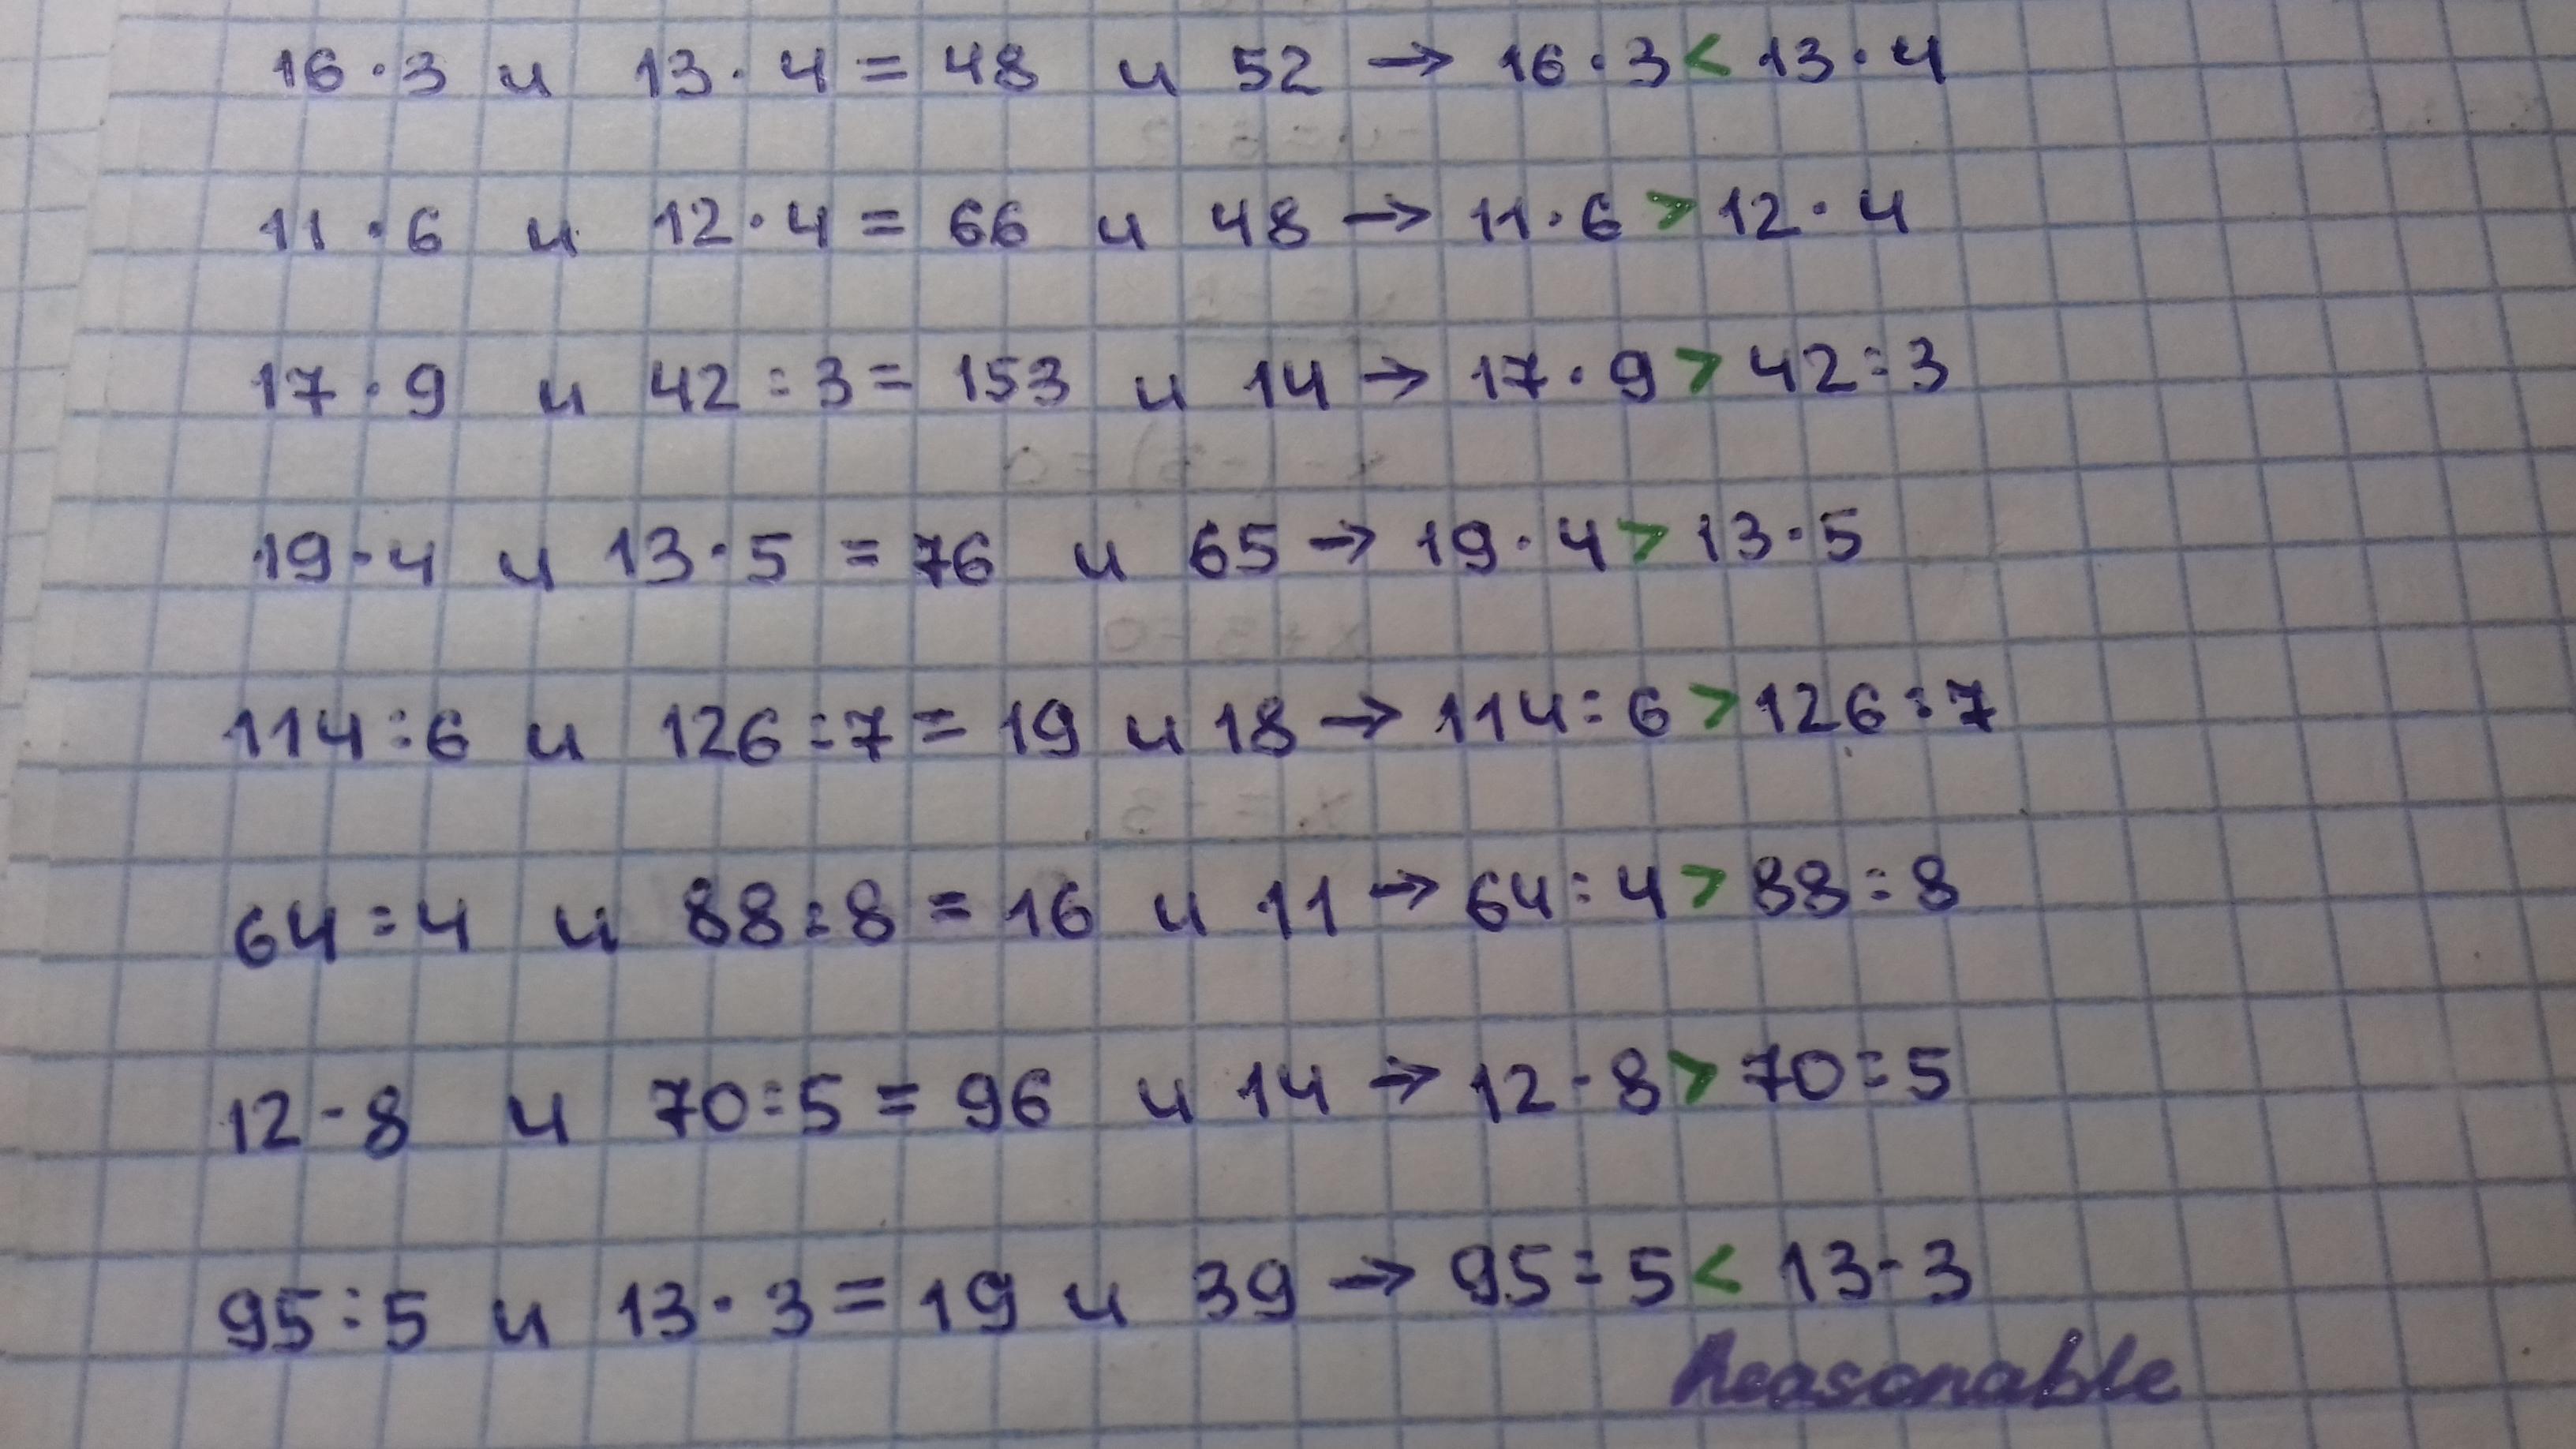 16·3 и 13·4 = 48 и 52 → 16·3 < 13·4
11·6 и 12·4 = 66 и 48 → 11·6 > 12·4
17·9 и 42:3 = 153 и 14 → 17·9 > 42:3
19·4 и 13·5 = 76 и 65 → 19·4 > 13·5
114:6 и 126:7 = 19 и 18 → 114:6 > 126:7
64:4 и 88:8 = 16 и 11 → 64:4 > 88:8
12·8 и 70:5 = 96 и 14 → 12·8 > 70:5
95:5 и 13·3 = 19 и 39 → 95:5 < 13·3
Reasonable